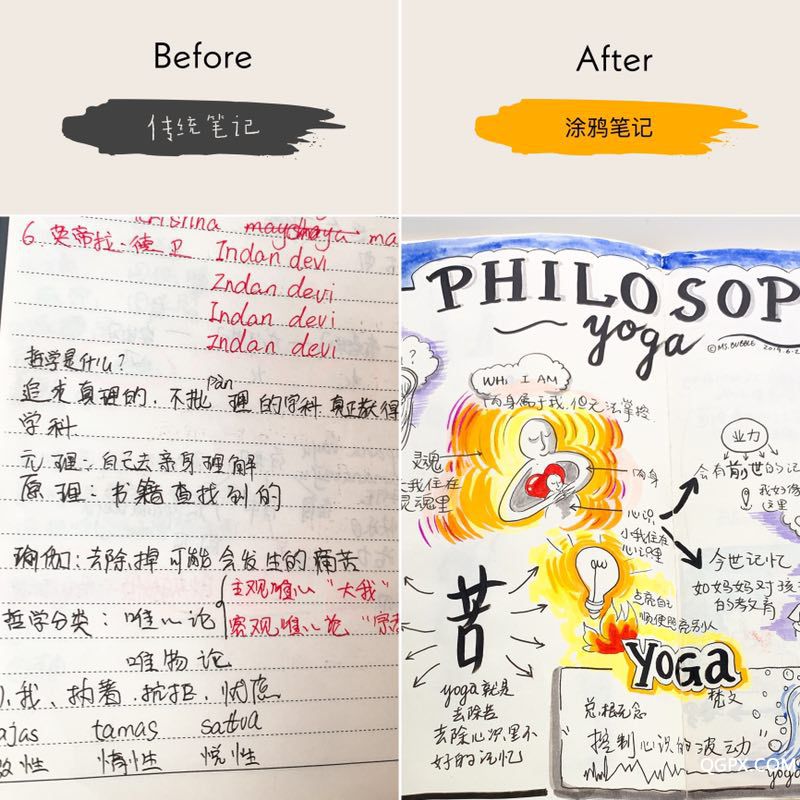 Before
传统笔记
After
涂鸦笔记
6 英帝拉·德卫 Indan devi
Indan devi
Indan devi
Indan devi
哲学是什么?
追求真理的,不批pàn 理的学科 真正获得
学科
元理:自己去亲身理解
原理:书籍查找到的
瑜伽:去除掉可能会发生的痛苦
哲学分类:唯心论
主观唯心“大我”
客观唯心论
唯物论
我、执着、抗拒、忧虑
ajas tamas sattva
性 惰性 悦性
PHILOSOP
yoga
©MS.BUBBLE 2019.6.2
WH I AM
肉身属于我,但无法掌控
灵魂
大我住在
灵魂里
肉身
心识
小我住在
心识里
业力
会有前世的记
我好像
这里
今世记忆
如妈妈对孩
的教育
点亮自己
顺便照亮别人
苦
yoga就是
去除苦
去除心识里不
好的记忆
YOGA
梵文
总.根无念
“控制心识的波动”
yoga
QGPX.COM